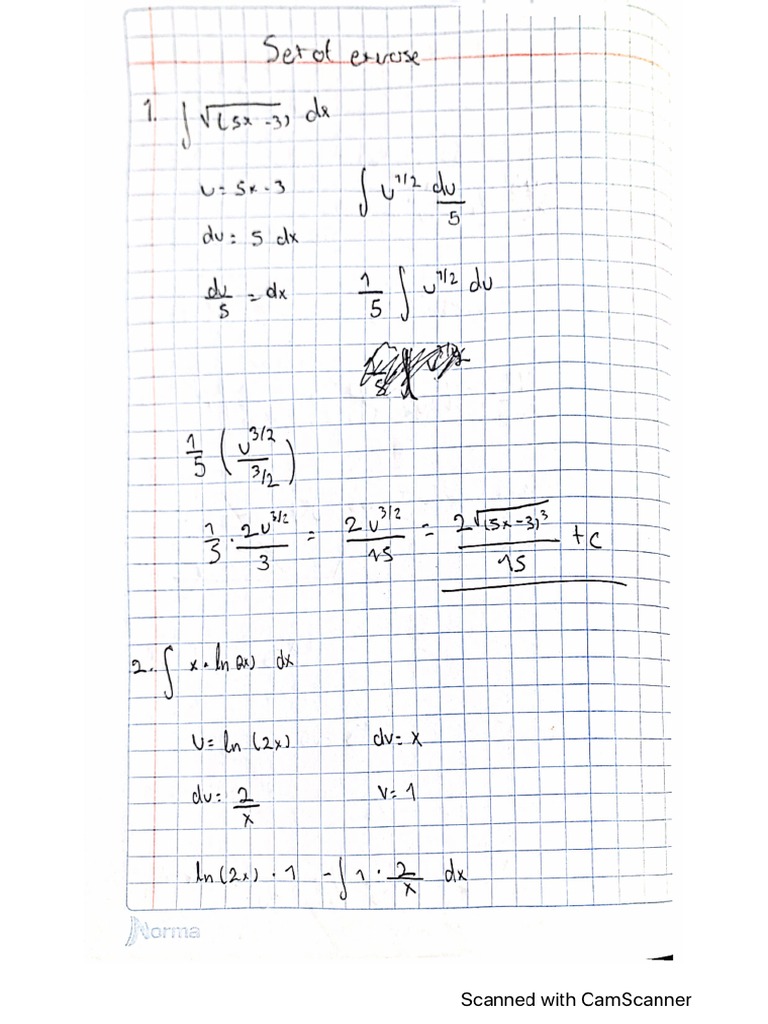 1. ∫ √(5x-3) dx
u = 5x-3 ∫ u^1/2 du/5
du = 5 dx
du/5 = dx 1/5 ∫ u^1/2 du
1/5 (u^3/2 / 3/2)
1/5 · 2u^3/2 / 3 = 2u^3/2 / 15 = 2√(5x-3)^3 / 15 + c
2. ∫ x · ln(2x) dx
u = ln (2x) dv = x
du = 2/x v = 1
ln(2x) · 1 - ∫ 1 · 2/x dx
Norma
Scanned with CamScanner